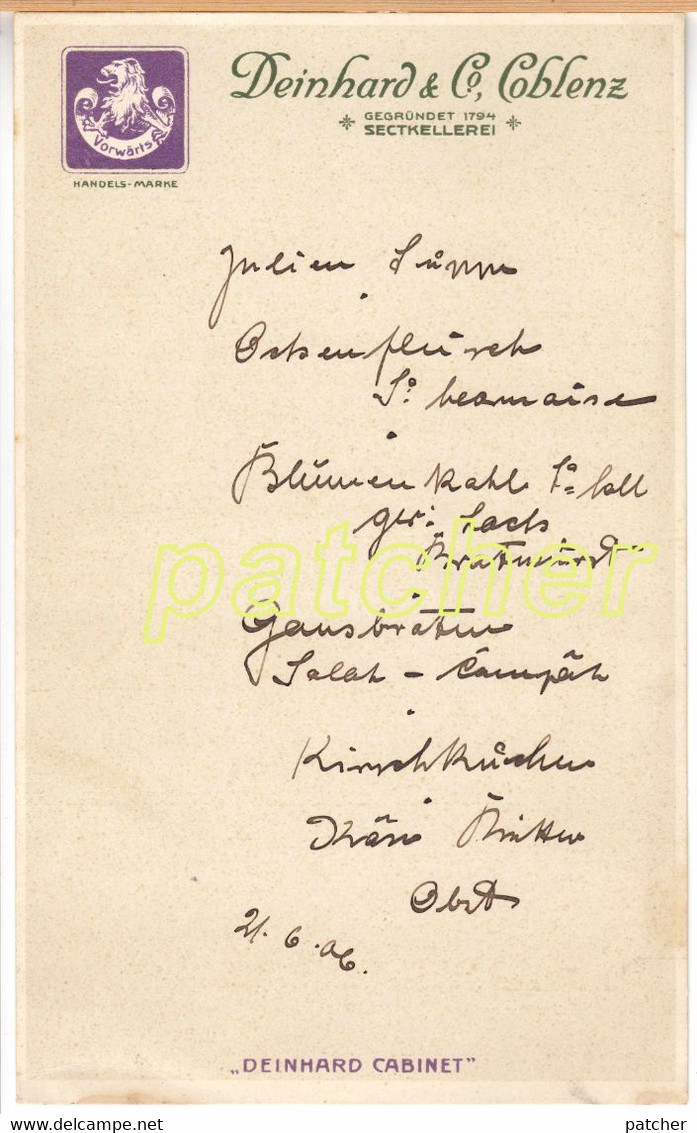 Deinhard & Co, Coblenz
GEGRÜNDET 1794
SECTKELLEREI
Vorwärts
HANDELS-MARKE
Julien Suppe
Ochsenfleisch
Sc. bearnaise
Blumenkohl
ger: Lachs
Bratwurst
patcher
Gansbraten
Salat - Compot
Kirschkuchen
Käse Butter
Obst
21.6.06.
„DEINHARD CABINET"
www.delcampe.net
patcher